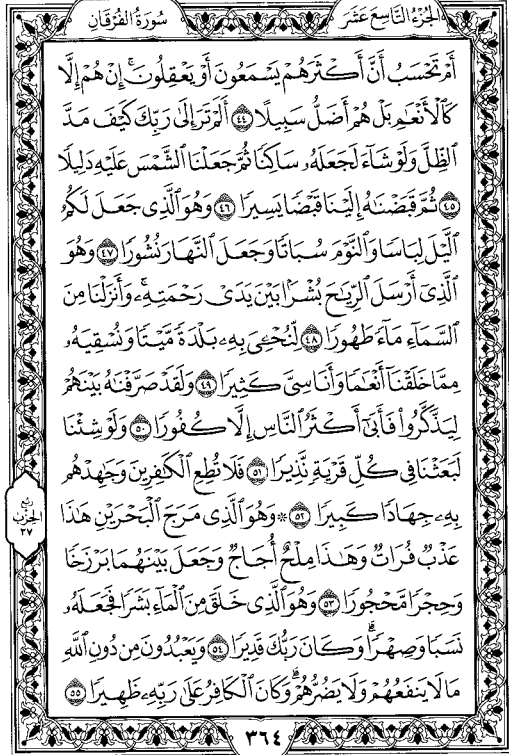 الجزء التاسع عشر
سورة الفرقان
أَمْ تَحْسَبُ أَنَّ أَكْثَرَهُمْ يَسْمَعُونَ أَوْ يَعْقِلُونَ ۚ إِنْ هُمْ إِلَّا
كَالْأَنْعَامِ بَلْ هُمْ أَضَلُّ سَبِيلًا ٤٤ أَلَمْ تَرَ إِلَىٰ رَبِّكَ كَيْفَ مَدَّ
الظِّلَّ وَلَوْ شَاءَ لَجَعَلَهُ سَاكِنًا ثُمَّ جَعَلْنَا الشَّمْسَ عَلَيْهِ دَلِيلًا
٤٥ ثُمَّ قَبَضْنَاهُ إِلَيْنَا قَبْضًا يَسِيرًا ٤٦ وَهُوَ الَّذِي جَعَلَ لَكُمُ
اللَّيْلَ لِبَاسًا وَالنَّوْمَ سُبَاتًا وَجَعَلَ النَّهَارَ نُشُورًا ٤٧ وَهُوَ
الَّذِي أَرْسَلَ الرِّيَاحَ بُشْرًا بَيْنَ يَدَيْ رَحْمَتِهِ ۚ وَأَنْزَلْنَا مِنَ
السَّمَاءِ مَاءً طَهُورًا ٤٨ لِنُحْيِيَ بِهِ بَلْدَةً مَيْتًا وَنُسْقِيَهُ
مِمَّا خَلَقْنَا أَنْعَامًا وَأَنَاسِيَّ كَثِيرًا ٤٩ وَلَقَدْ صَرَّفْنَاهُ بَيْنَهُمْ
لِيَذَّكَّرُوا فَأَبَىٰ أَكْثَرُ النَّاسِ إِلَّا كُفُورًا ٥٠ وَلَوْ شِئْنَا
لَبَعَثْنَا فِي كُلِّ قَرْيَةٍ نَذِيرًا ٥١ فَلَا تُطِعِ الْكَافِرِينَ وَجَاهِدْهُمْ
بِهِ جِهَادًا كَبِيرًا ٥٢ ۞ وَهُوَ الَّذِي مَرَجَ الْبَحْرَيْنِ هَٰذَا
عَذْبٌ فُرَاتٌ وَهَٰذَا مِلْحٌ أُجَاجٌ وَجَعَلَ بَيْنَهُمَا بَرْزَخًا
وَحِجْرًا مَحْجُورًا ٥٣ وَهُوَ الَّذِي خَلَقَ مِنَ الْمَاءِ بَشَرًا فَجَعَلَهُ
نَسَبًا وَصِهْرًا ۗ وَكَانَ رَبُّكَ قَدِيرًا ٥٤ وَيَعْبُدُونَ مِنْ دُونِ اللَّهِ
مَا لَا يَنْفَعُهُمْ وَلَا يَضُرُّهُمْ ۗ وَكَانَ الْكَافِرُ عَلَىٰ رَبِّهِ ظَهِيرًا ٥٥
ربع
الحزب
٣٧
٣٦٤